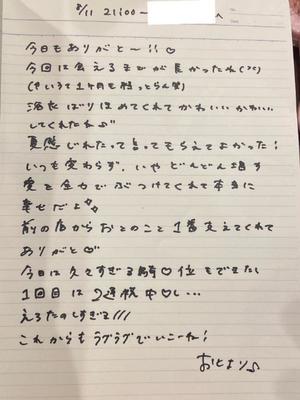 8/11 21:00〜 へ
今日もありがと〜!!♡
今回は会えるまでが長かったね(><)
(そいうて1ヶ月も経っとらん笑)
浴衣ばり ほめてくれて かわいい かわいい
してくれたね♪
夏感じれたって言ってもらえてよかった!
いつも変わらず、いや どんどん増す
愛を全力でぶつけてくれて本当に
幸せだよ
前の店からおとのこと1番支えてくれて
ありがと♡
今日は久々すぎる騎♡位もできたし
1回目は2連続中♡し...
えろたのしすぎる///
これからもラブラブでいこーね!
おとより♪